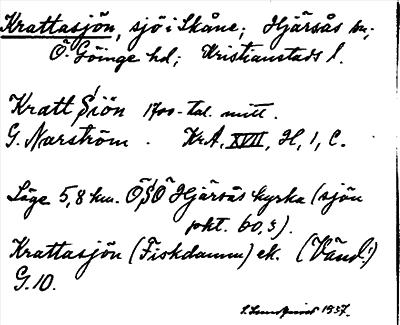 Krattasjön, sjö i Skåne; Hjärsås sn;
Ö. Göinge hd; Kristianstads l.
Kratt Siön 1700-tal. mitt.
G. Narström. Kr.A, XVII, H, 1, C.
Läge 5,8 km. ÖSÖ Hjärsås kyrka (sjön
pkt. 60,3).
Krattasjön (Fiskdamm) ek. (Vänd!)
G.10.
1937.